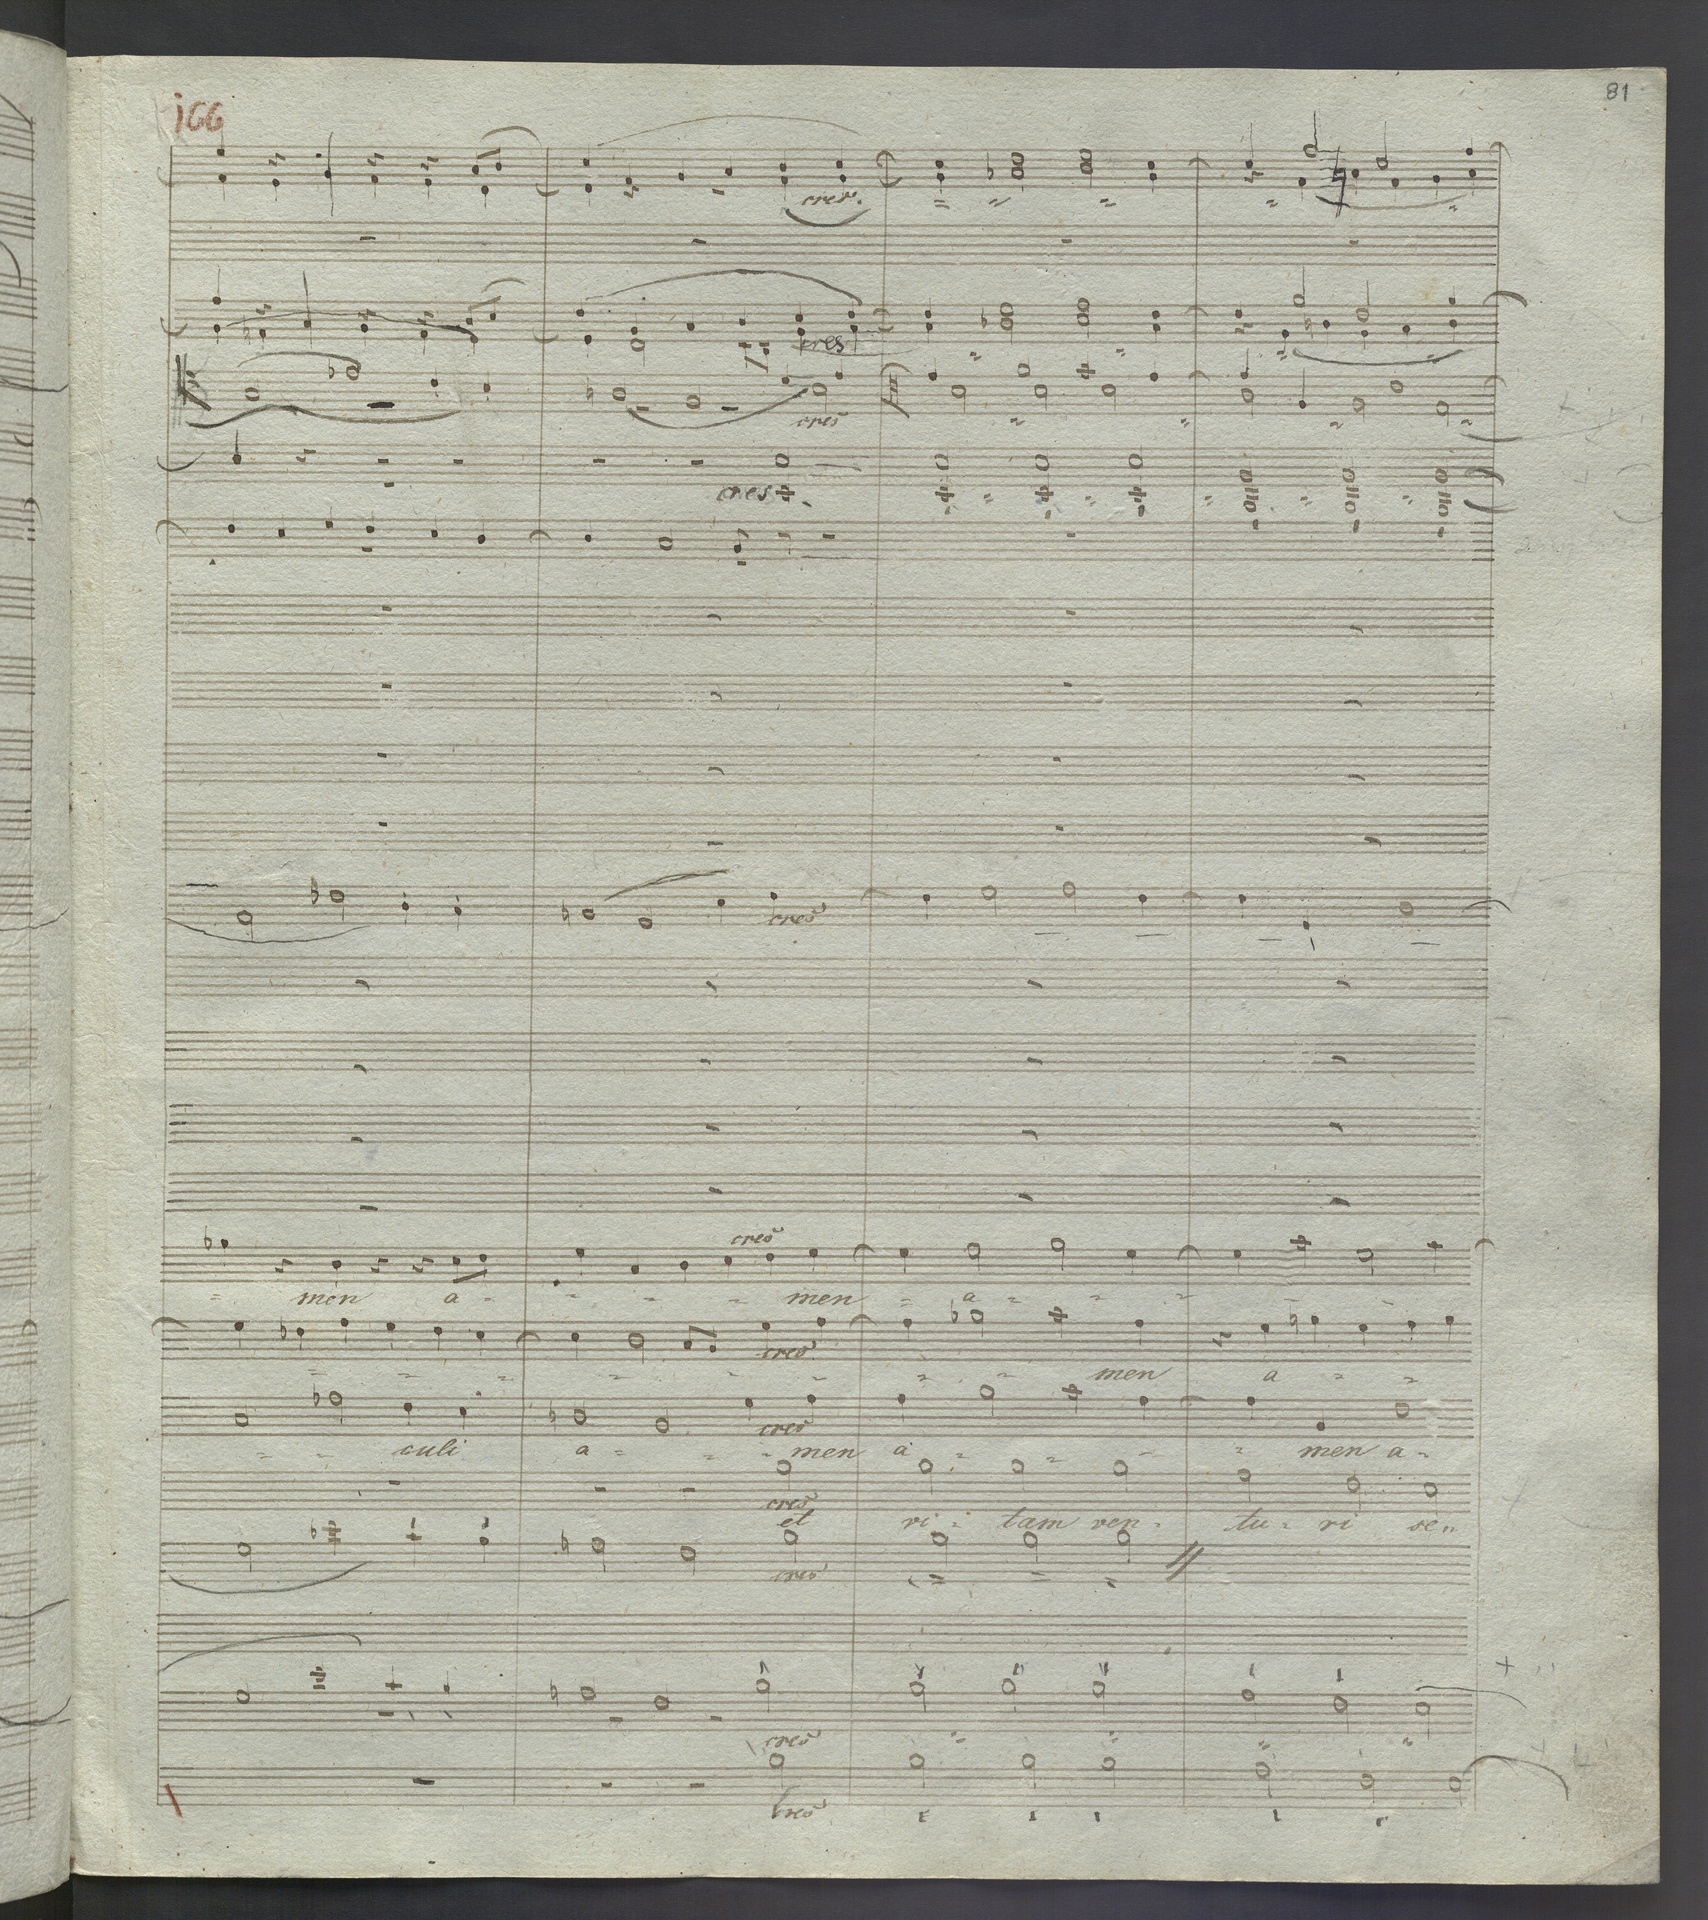 166
81
cres.
cres
cres
cres
cres
cres
= men a - - - - men = a - - - - -
cres
- - - - - - - - men a - -
cres
- - culi a - - - men a - - - men a -
cres
cres
et vi - tam ven - tu - ri se -
cres
cres
cres